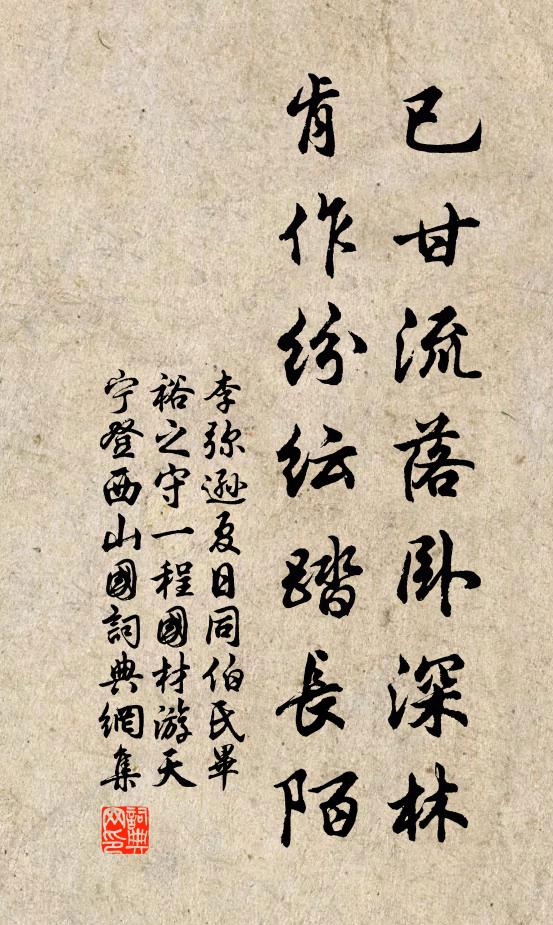 已甘流落卧深林
肯作纷纭踏長陌
李弥遜夏日同伯氏畢
裕之守一程國材游天
宁登西山國詞典網集
詞典
网印